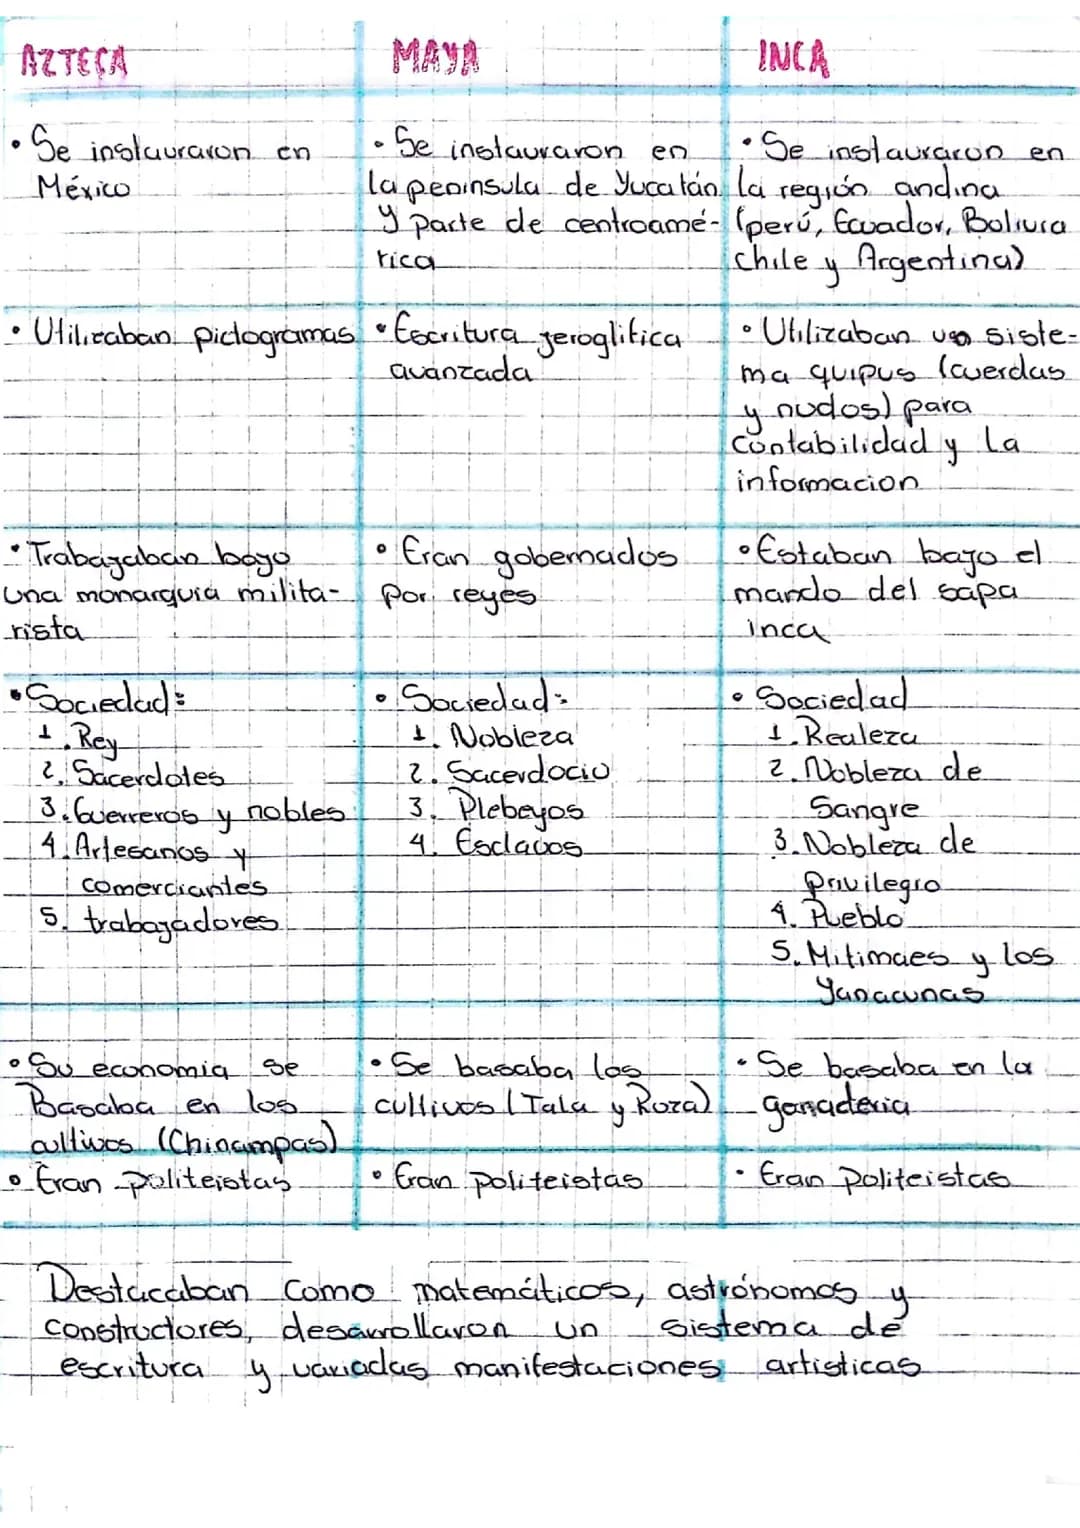 AZTECA
MAYA
INCA
• Se instauraron en
México
• Se instauraron en
la peninsula de Yucatán
y parte de centroamé-
rica
• Se instauraron en
la región andina
(perú, Ecuador, Bolivia
Chile y Argentina)
• Utilizaban pictogramas
• Escritura jeroglifica
avanzada
• Utilizaban un siste-
ma quipus (cuerdas
y nudos) para
contabilidad y la
informacion
• Trabajaban bajo
una monarquia milita-
rista
• Eran gobernados
por reyes
• Estaban bajo el
mando del sapa
inca
• Sociedad:
1. Rey
2. Sacerdotes
3. Guerreros y nobles
4. Artesanos y
comerciantes
5. trabajadores
• Sociedad:
1. Nobleza
2. Sacerdocio
3. Plebeyos
4. Esclavos
• Sociedad
1. Realeza
2. Nobleza de
Sangre
3. Nobleza de
privilegio
4. Pueblo
5. Mitimaes y los
Yanacunas
• Su economia se
Basaba en los
cultivos (Chinampas)
• Se basaba los
cultivos (Tala y Roza)
• Se basaba en la
ganaderia
• Eran politeistas
• Eran politeistas
• Eran Politeistas
Destacaban como matemáticos, astrónomos y
constructores, desarrollaron un sistema de
escritura y variadas manifestaciones artisticas